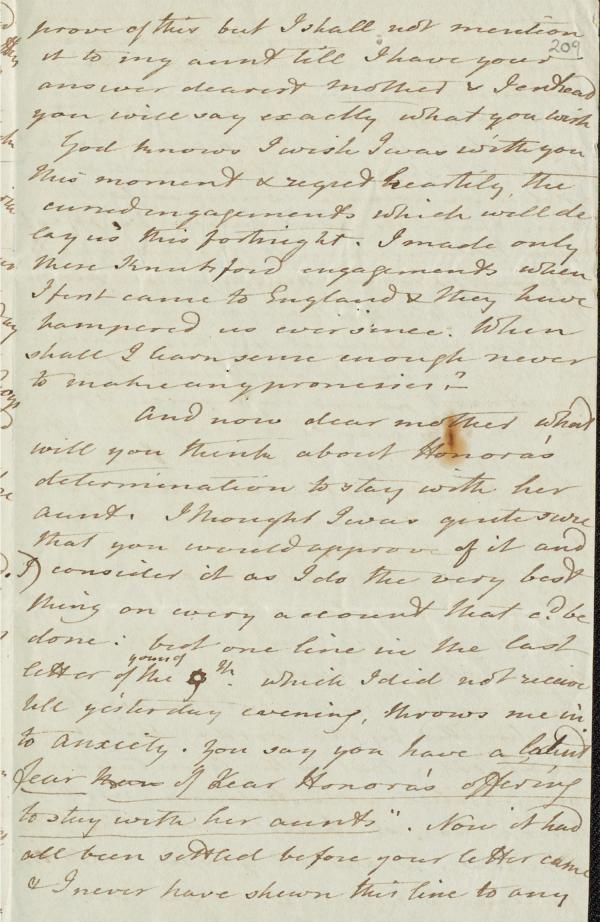 prove of this but I shall not mention
209
it to my aunt till I have your
answer dearest mother & I entread
you will say exactly what you wish
God knows I wish I was with you
this moment & regret heartily the
cursed engagements which will de
lay us this fortnight. I made only
these Knutsford engagements when
I first came to England & they have
hampered us ever since. When
shall I learn sense enough never
to make any promises?
And now dear mother what
will you think about Honora's
determination to stay with her
aunt. I thought I was quite sure
that you would approve of it and
consider it as I do the very best
thing on every account that cd be
done: but one line in the last
letter of yours of the 9th. which I did not receive
till yesterday evening, throws me in
to anxiety. You say you have a latent
fear of dear Honora's offering
to stay with her aunts". Now it had
all been settled before your letter came
& I never have shewn this line to any